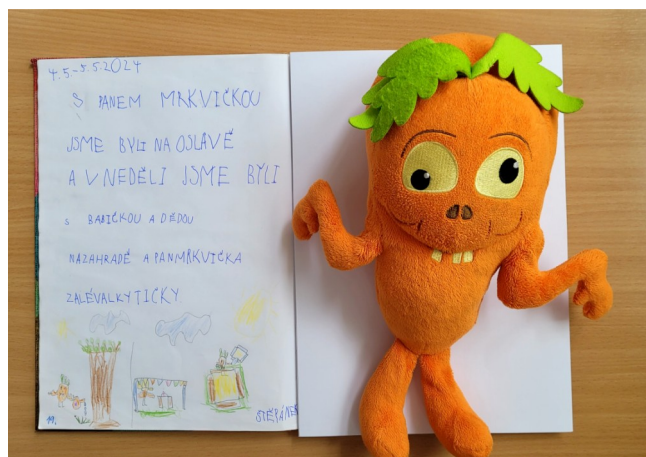 4.5.-5.5.2024
S PANEM MRKVIČKOU
JSME BYLI NA OSLAVĚ
A V NEDĚLI JSME BYLI
S BABIČKOU A DĚDOU
NAZAHRADĚ A PANMRKVIČKA
ZALÉVALKYTIČKY
ŠTĚPÁNEK
19.